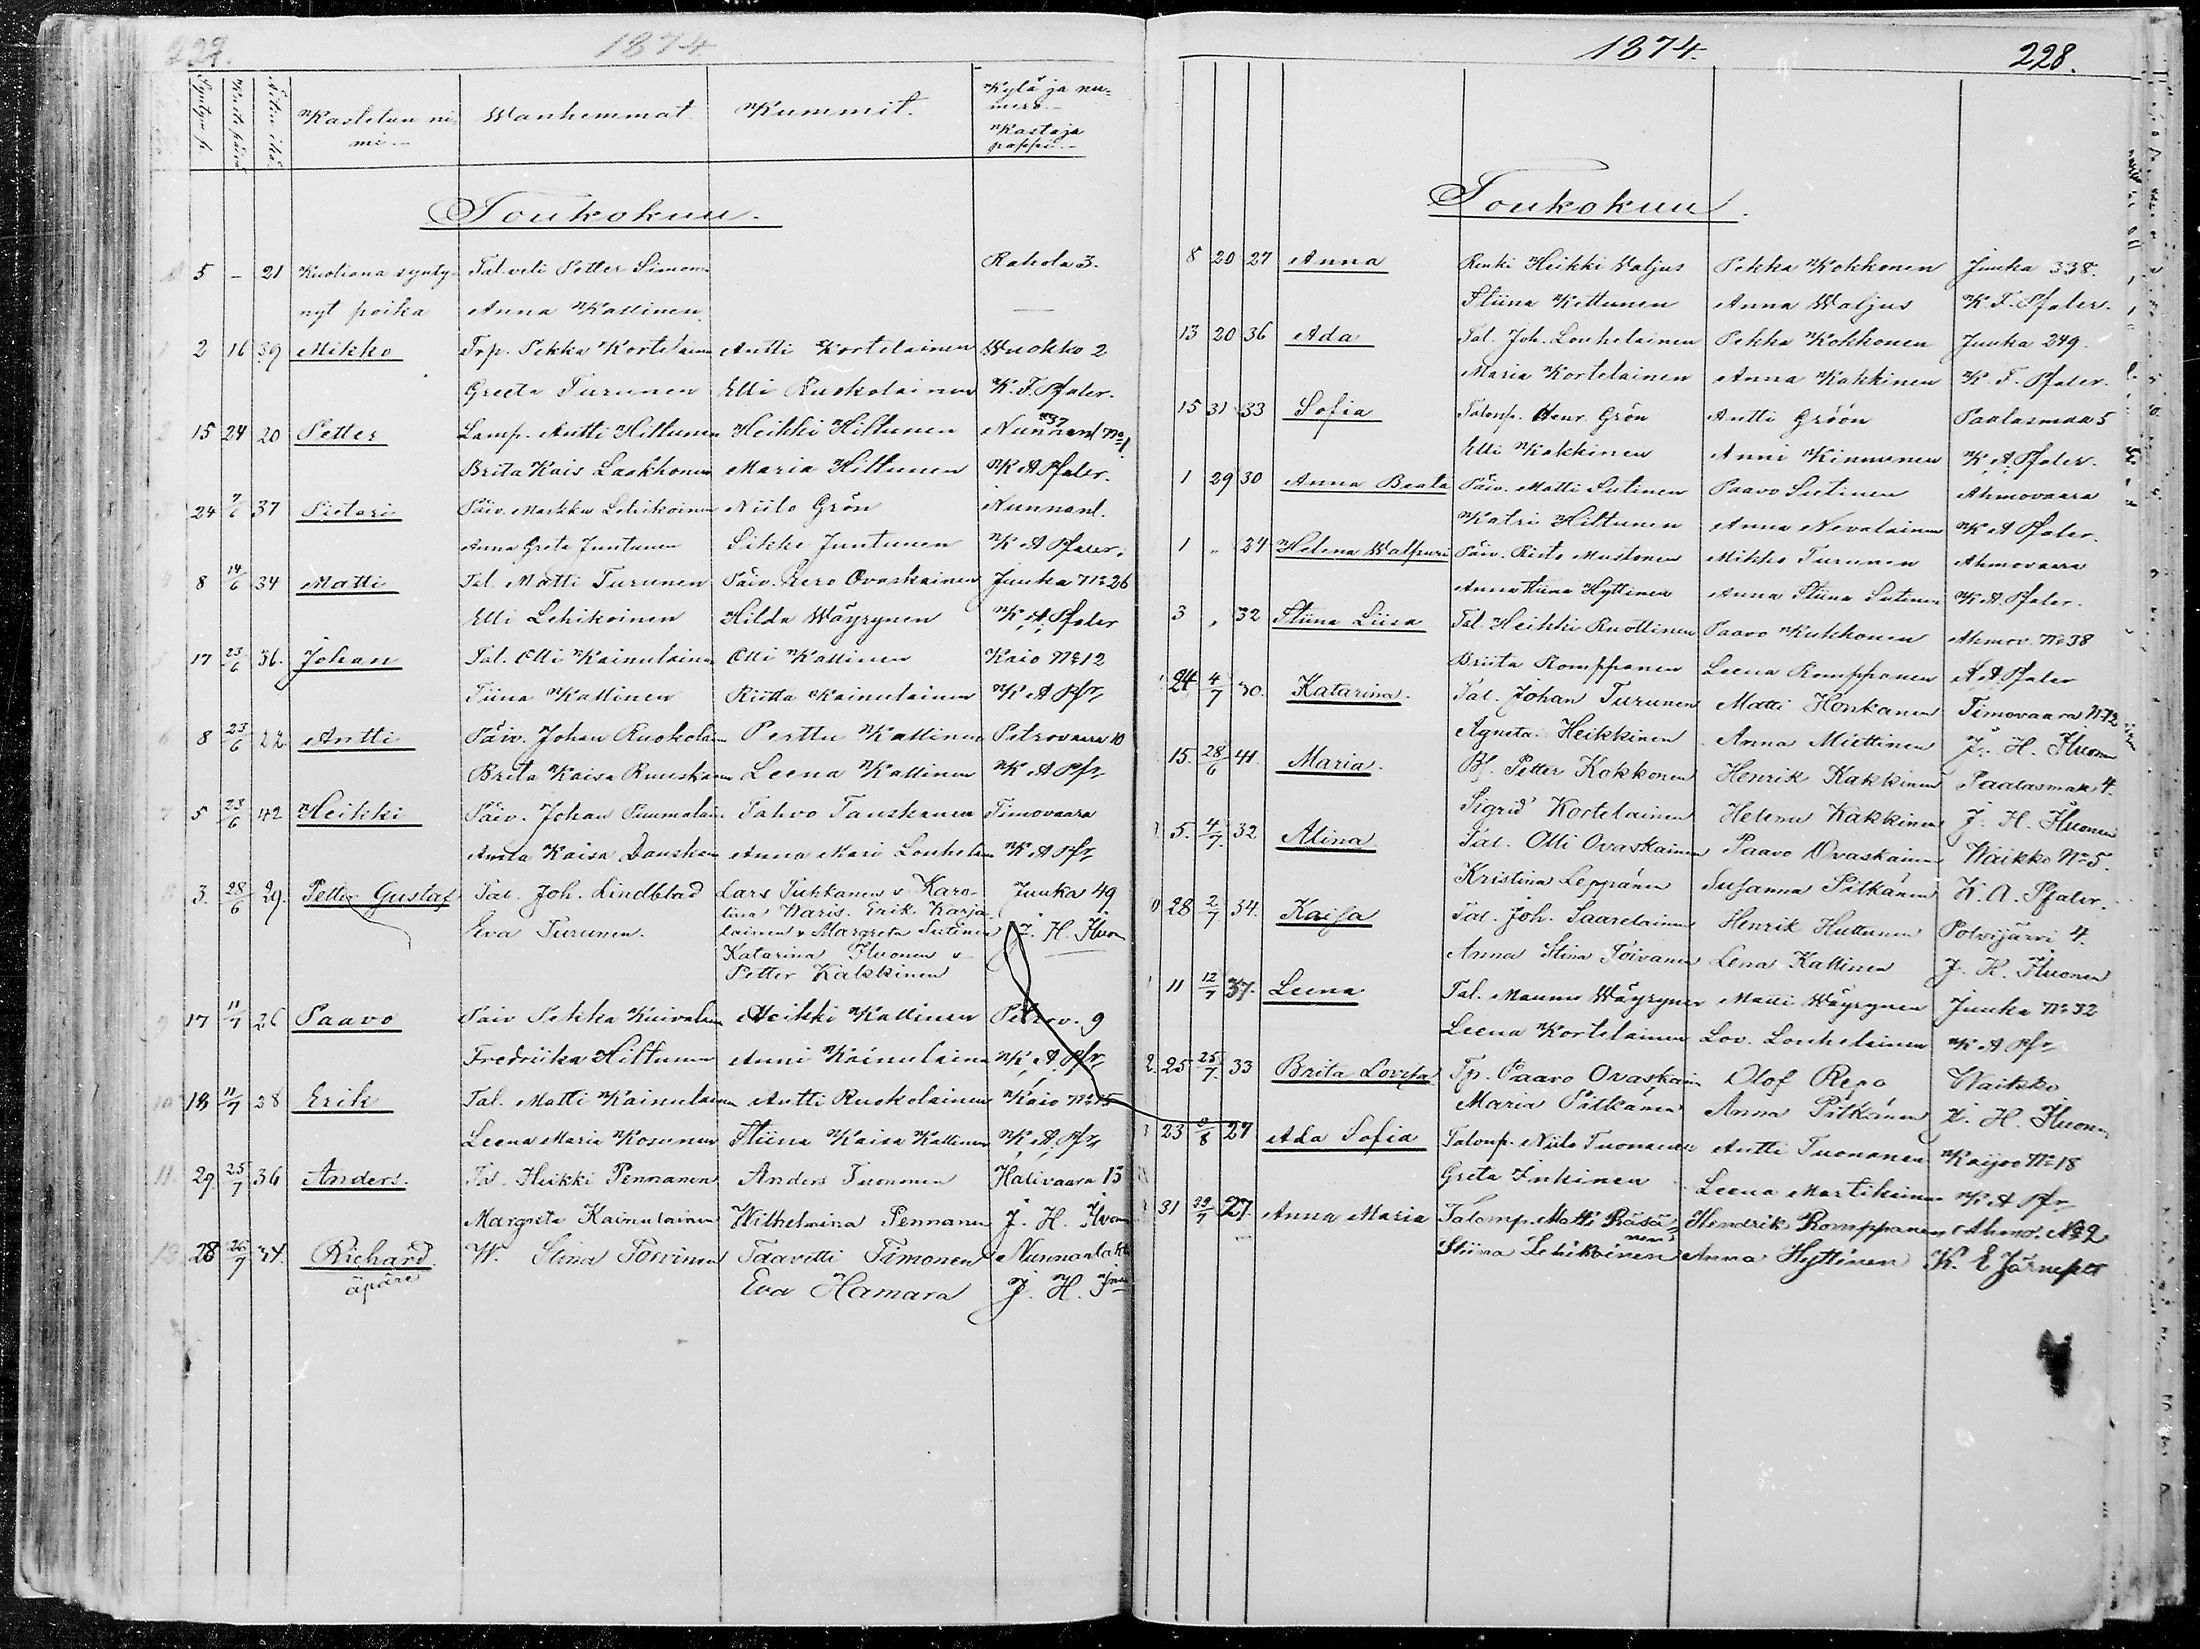 227.
1874
Syntym p.
Kast päivä
Äitin ikä
Kastetun ni-
mi.
Wanhemmat.
Kummit.
Kylä ja nu-
mero.
Kastaja
pappi.
Toukokuu.
5 - 21 Kuoliana synty- Tal.veli Petter Simonen Rahola 3.
nyt poika Anna Kallinen
2 16 39 Mikko Trp. Pekka Kortelainen Antti Kortelainen Wuokko 2
Greeta Turunen Elli Ruokolainen K. F. Pfaler.
15 24 20 Petter Lamp. Antti Hiltunen Heikki Hiltunen Nunnanl
Brita Kais Laakkonen Maria Hiltunen K A Pfaler.
24 7/6 37 Pietari Päiv. Markku Lehikoinen Niilo Grön Nunnanl.
Anna Greta Juntunen Sikke Juntunen K A Pfaler.
8 14/6 34 Matti Tal. Matti Turunen Päiv. Eero Ovaskainen Juuka No 26
Elli Lehikoinen Hilda Wäyrynen K. A. Pfaler
17 23/6 36. Johan Tal. Olli Kainulainen Olli Kallinen Kaio No 12
Tiina Kallinen Riitta Kainulainen K A Pfr
8 23/6 22 Antti Päiv. Johan Ruokolain Perttu Kallinen Petrovaara 10
Brita Kaisa Ruuskanen Leena Kallinen K A Pfr
5 23/6 42 Heikki Päiv. Johan Pummalain. Pahvo Tanskanen Timovaara
Kaisa Danskan Anna Mari Louhelain K A Pfr
3. 28/6 29. Petter Gustaf Tal. Joh. Lindblad Lars Pukkanen & Karo- Juuka 49
lina Waris. Erik Karja-
Eva Turunen. lainen & Margreta Sutinen J. H. Iluon
Katarina Iluonen &
Petter Kakkinen
17 11/7 26 Paavo Päiv Pekka Kuivalain Heikki Kallinen Petrov. 9
Fredriika Hiltunen Anni Kainulainen K. A. Pfr
18 11/7 28 Erik Tal. Matti Kainulainen Antti Ruokolainen Kaio No 15
Leena Maria Kosunen Stiina Kaisa Kallinen K. A. Pfr
11. 29. 25/7 36 Anders. Tal. Heikki Pennanen Anders Tuononen Halivaara 13
Margreta Kainulainen Wilhelmina Pennanen J. H. Iluon
28 26/7 34. Richard W. Stina Toivinen Taavetti Timonen Nunnanlaks
äpäre Eva Hamara J. H.
1874.
228.
Toukokuu.
8 20 27 Anna Renki Heikki Waljus Pekka Kokkonen Juuka 338.
Stiina Kettunen Anna Waljus K. F. Pfaler.
13 20 36 Ada Tal. Joh. Louhelainen Pekka Kokkonen Juuka 249.
Maria Kortelainen Anna Kakkinen K. F. Pfaler.
15 31 33 Sofia Talonp. Henr. Grön Antti Gröön Paalasmaa 5
Elli Kakkinen Anni Kinnunen K. A. Pfaler.
1 29 30 Anna Beata Päiv. Matti Sutinen Paavo Sutinen Ahmovaara
Katri Hiltunen Anna Nevalainen K A Pfaler.
1 „ 24 Helena Walpuri Päiv. Risto Mustonen Mikko Turunen Ahmovaara
Anna Stiina Hyttinen Anna Stiina Sutinen K A. Pfaler.
3 „ 32 Stiina Liisa Tal. Heikki Ruottinen Paavo Kukkonen Ahmov. No 38
Briita Romppanen Leena Romppanen A. Pfaler
24 4/7 30. Katarina. Tal. Johan Turunen Matti Honkanen Timovaara No 12
Agneta Heikkinen Anna Miettinen J. H. Iluonen
15. 28/6 41. Maria. Petter Kokkonen Henrik Kakkinen Paalasmaa 4.
Sigrid Kortelainen Helena Kakkinen J. H. Iluonen
5. 4/7. 32. Alina Tal. Olli Ovaskainen Paavo Ovaskainen Waikko No 5.
Kristina Leppänen Susanna Pitkänen K. A. Pfaler.
28 2/7 34. Kaisa Tal. Joh. Saarelainen Henrik Huttunen Polvijärvi 4.
Anna Stina Toivanen Lena Kallinen J. H. Iluonen
11 12/7 37. Leena Tal. Maunu Wäyrynen Matti Wäyrynen Juuka No 32
Leena Kortelainen Lov. Louhelainen K A Pfr
25 25/7. 33 Brita Lovisa Tp. Paavo Ovaskain Olof Repo Waikko
Maria Pitkänen Anna Pitkänen J. H. Iluonen
23 27 Ada Sofia Talonp. Niilo Tuononen Antti Tuononen Kaijoo No 18
Greta Inkinen Leena Martikainen K A Pfr
31 29/7 27. Anna Maria Talomp. Matti Räsä- Hendrik Romppanen Ahmo. No 2
nen
Stiina Lehikoinen Anna Hyttinen K. E